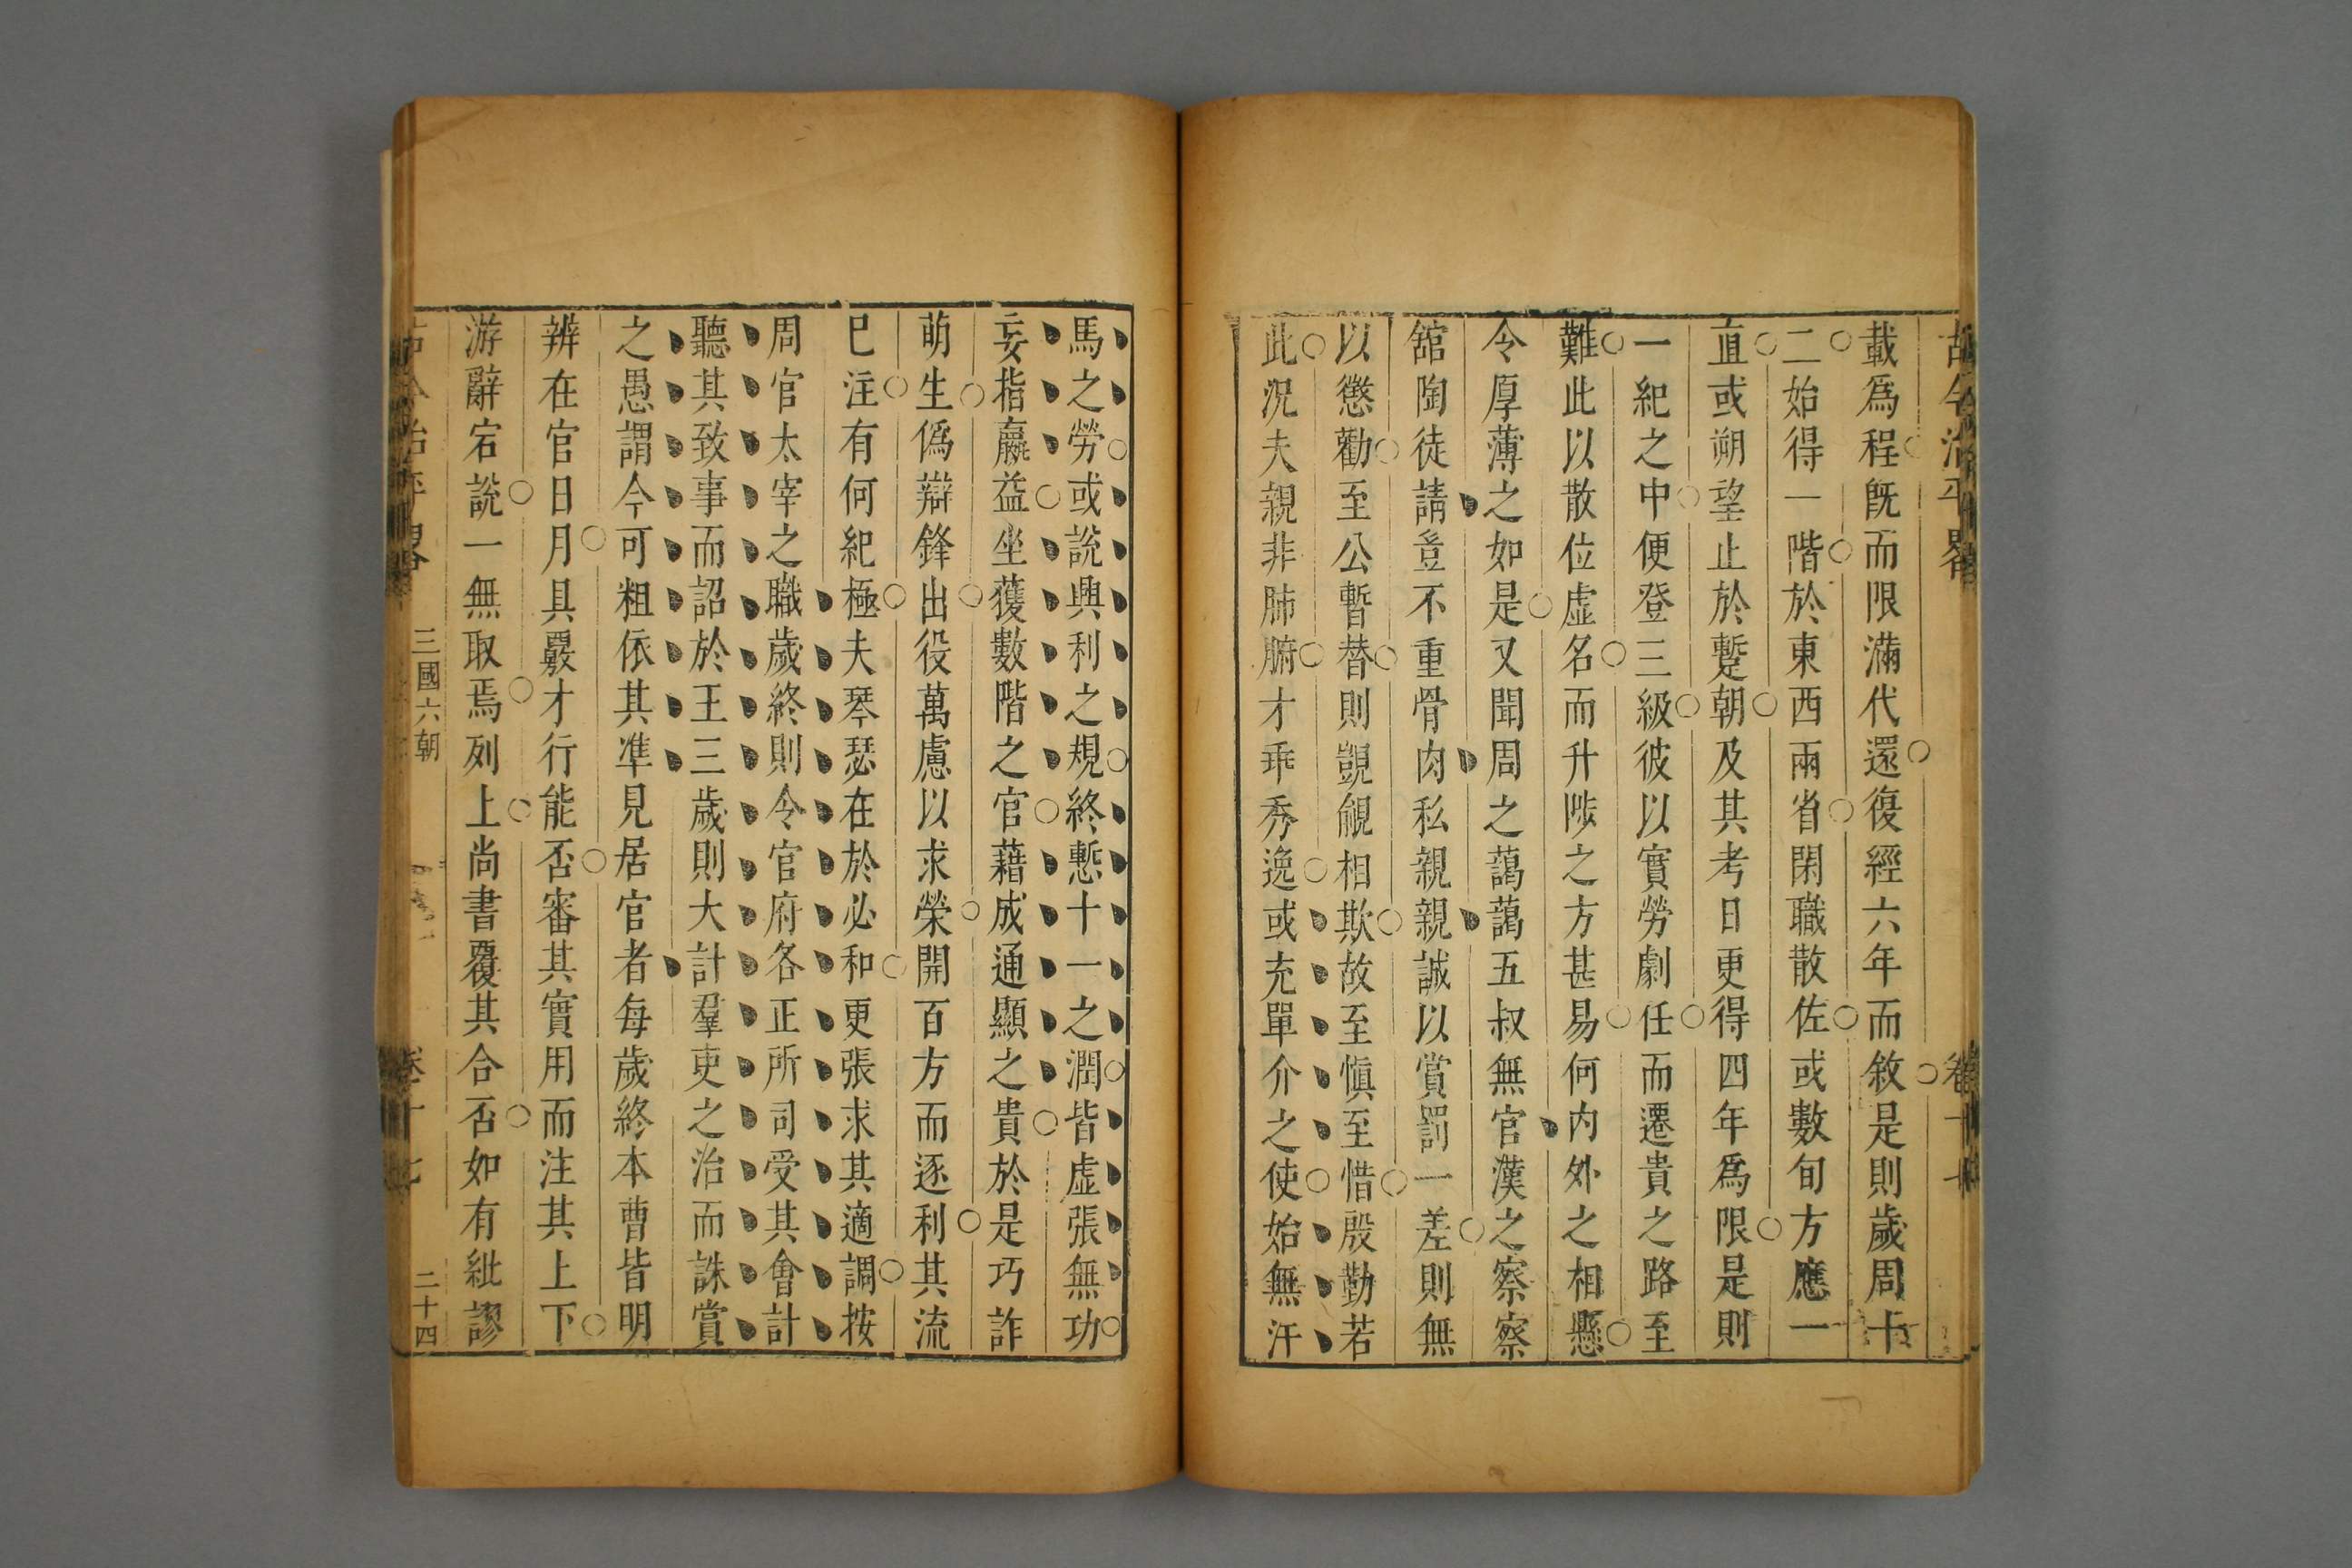 古今治平畧 卷十
載爲程旣而限滿代還復經六年而敘是則歲周十
二始得一階於東西兩省閑職散佐或數旬方應一
直或朔望止於蹔朝及其考日更得四年爲限是則
一紀之中便登三級彼以實勞劇任而遷貴之路至
難此以散位虛名而升陟之方甚易何内外之相懸
令厚薄之如是又聞周之藹藹五叔無官漢之察察
舘陶徒請豈不重骨肉私親親誠以賞罰一差則無
以懲勸至公暫替則覬覦相欺故至愼至惜殷勤若
此況夫親非肺腑才乖秀逸或充單介之使始無汗
馬之勞或說興利之規終慙十一之潤皆虛張無功
妄指羸益坐獲數階之官藉成通顯之貴於是巧詐
萌生僞辯鋒出役萬慮以求榮開百方而逐利其流
已注有何紀極夫琴瑟在於必和更張求其適調按
周官太宰之職歲終則令官府各正所司受其會計
聽其致事而詔於王三歲則大計羣吏之治而誅賞
之愚謂今可粗依其準見居官者每歲終本曹皆明
辨在官日月具覈才行能否審其實用而注其上下
游辭宕說一無取焉列上尚書覆其合否如有紕謬
古今治平畧 三國六朝 卷十七 二十四